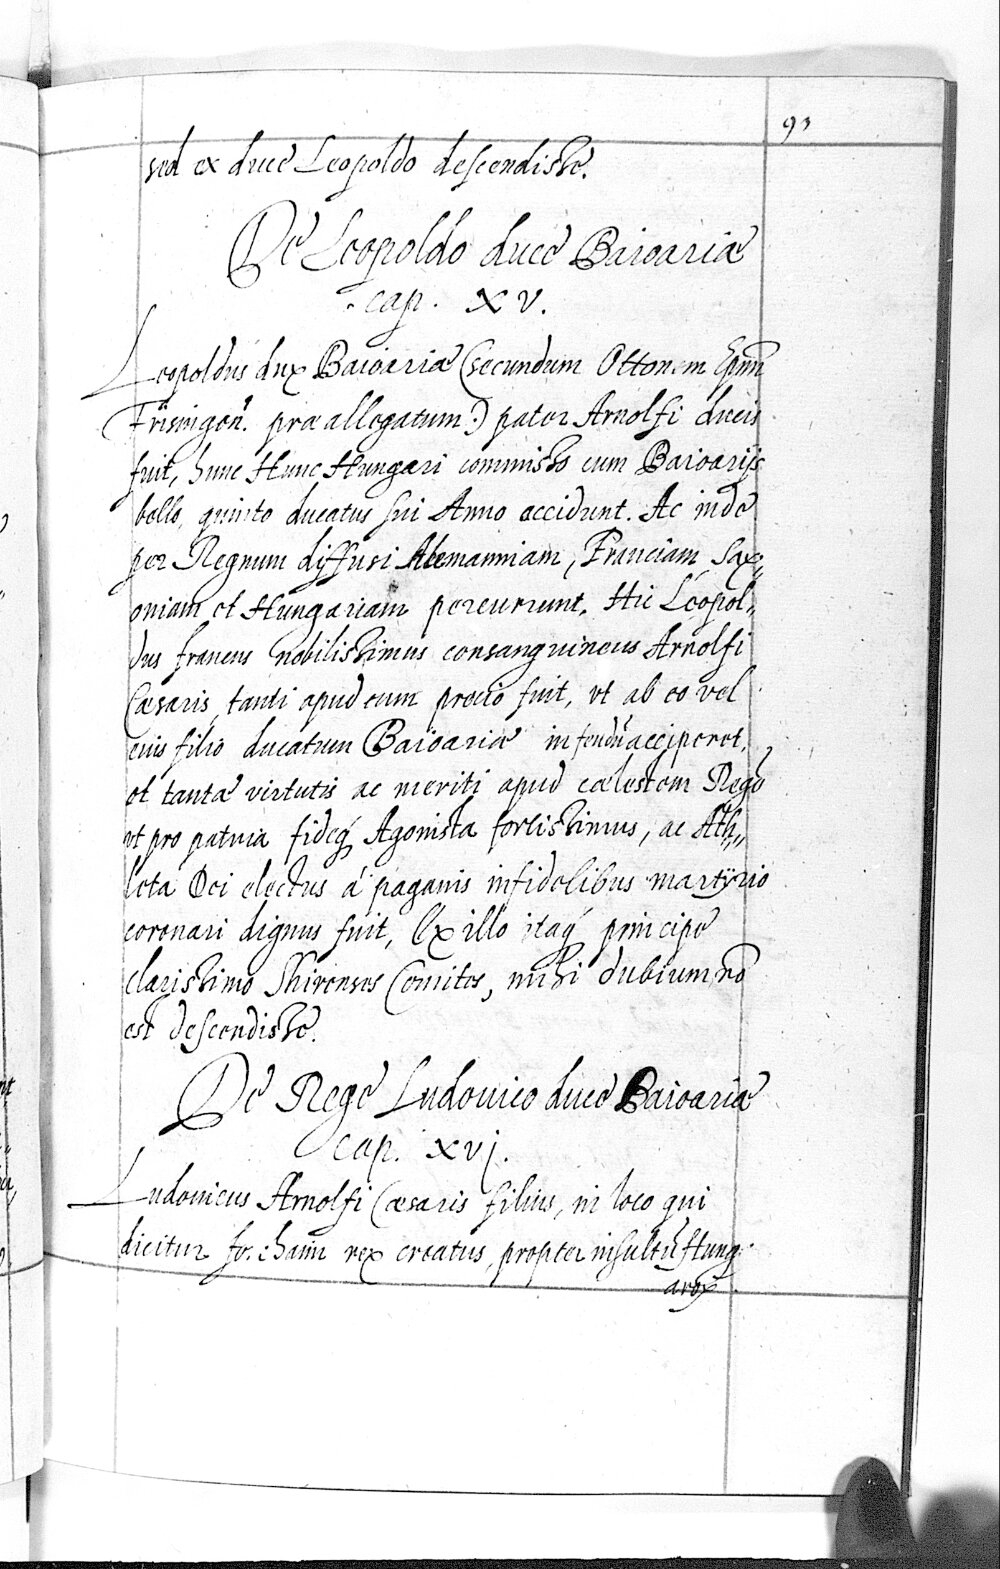 93
sed ex duce Leopoldo descendisse.
De Leopoldo duce Baioariæ
cap. XV.
Leopoldus dux Baioariæ (secundum Ottonem Ep̃m
Frisingeñ. præallegatum.) pater Arnolfi ducis
fuit, hunc Hunc Hungari commisso cum Baioarijs
bello, quinto ducatus sui Anno occidunt. Ac inde
per Regnum diffusi Alemanniam, Franciam, Sax„
oniam et Hungariam percurrunt. Hic Leopol„
dus francus nobilissimus consanguineus Arnolfi
Cæsaris, tanti apud eum precio fuit, vt ab eo vel
eius filio ducatum Baioariæ in feudũ acciperet,
et tantæ virtutis ac meriti apud cælestem Regẽ
vt pro patria fideq́ Agonista fortissimus, ac Ath„
leta Dei electus á paganis infidelibus martÿrio
coronari dignus fuit, Ex illo itaq́ principe
clarissimo Shirenses Comites, mihi dubium nõ
est descendisse.
De Rege Ludouico duce Baioariæ
cap. xvj.
Ludouicus Arnolfi Cæsaris filius, in loco qui
dicitur forchaim rex creatus, propter insultũ Hung
aroꝝ